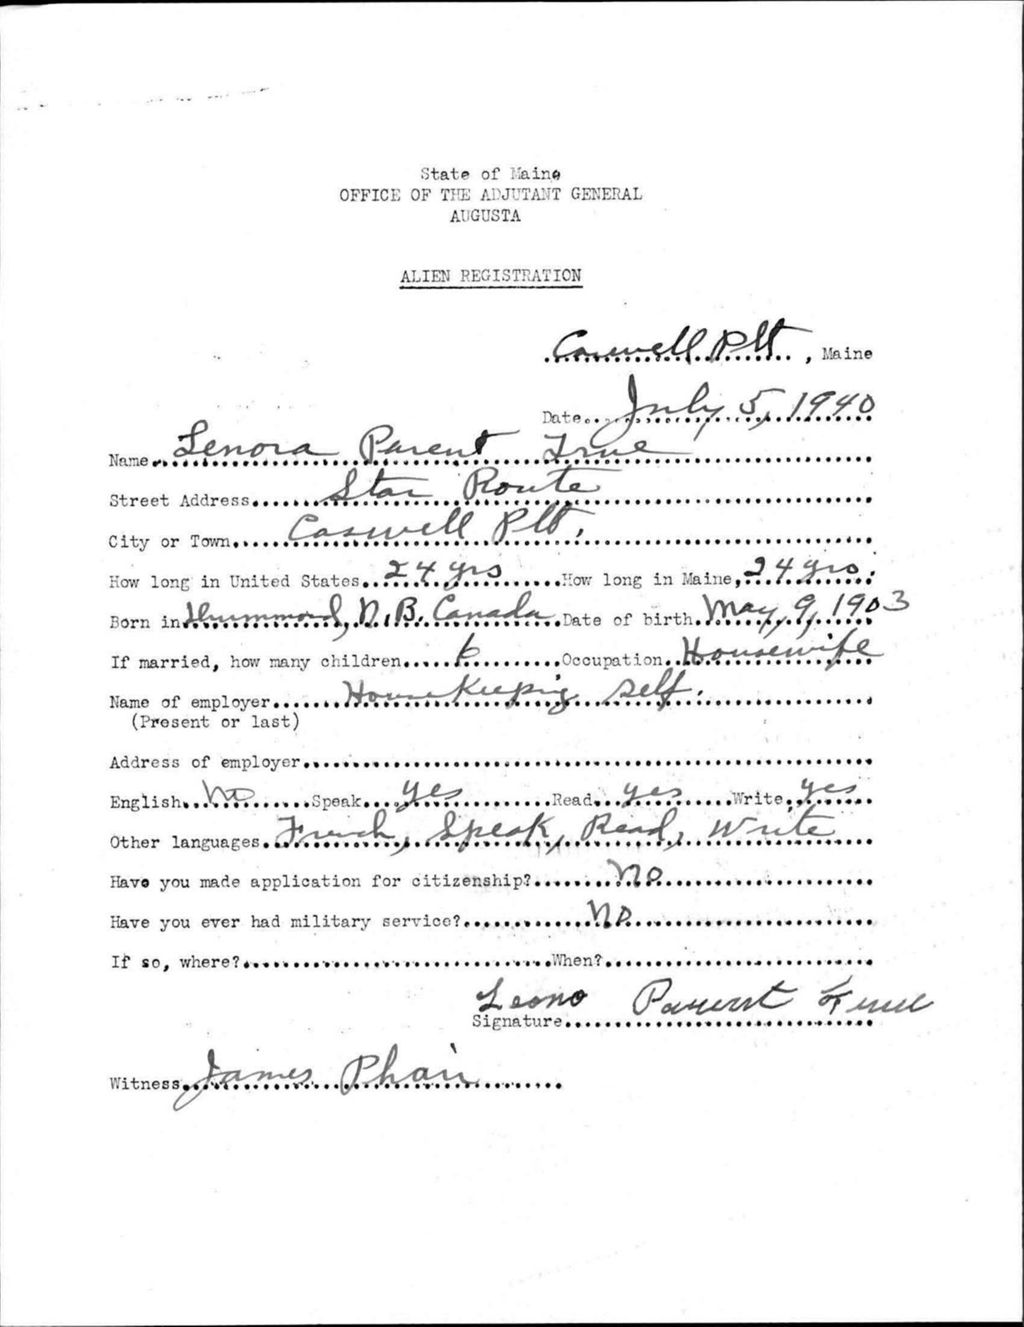 State of Maine
OFFICE OF THE ADJUTANT GENERAL
AUGUSTA
ALIEN REGISTRATION
Caswell Plt, Maine
Date July 5, 1940
Name Lenora Parent True
Street Address Star Route
City or Town Caswell Plt.
How long in United States 24 yrs How long in Maine, 24 yrs.
Born in Drummond, N.B. Canada Date of birth May, 9, 1903
If married, how many children 6 Occupation Housewife
Name of employer Housekeeping self.
(Present or last)
Address of employer
English No Speak yes Read yes Write yes
Other languages French, Speak, Read, Write
Have you made application for citizenship? No
Have you ever had military service? No
If so, where? When?
Leono Parent True
Signature
Witness James Phair